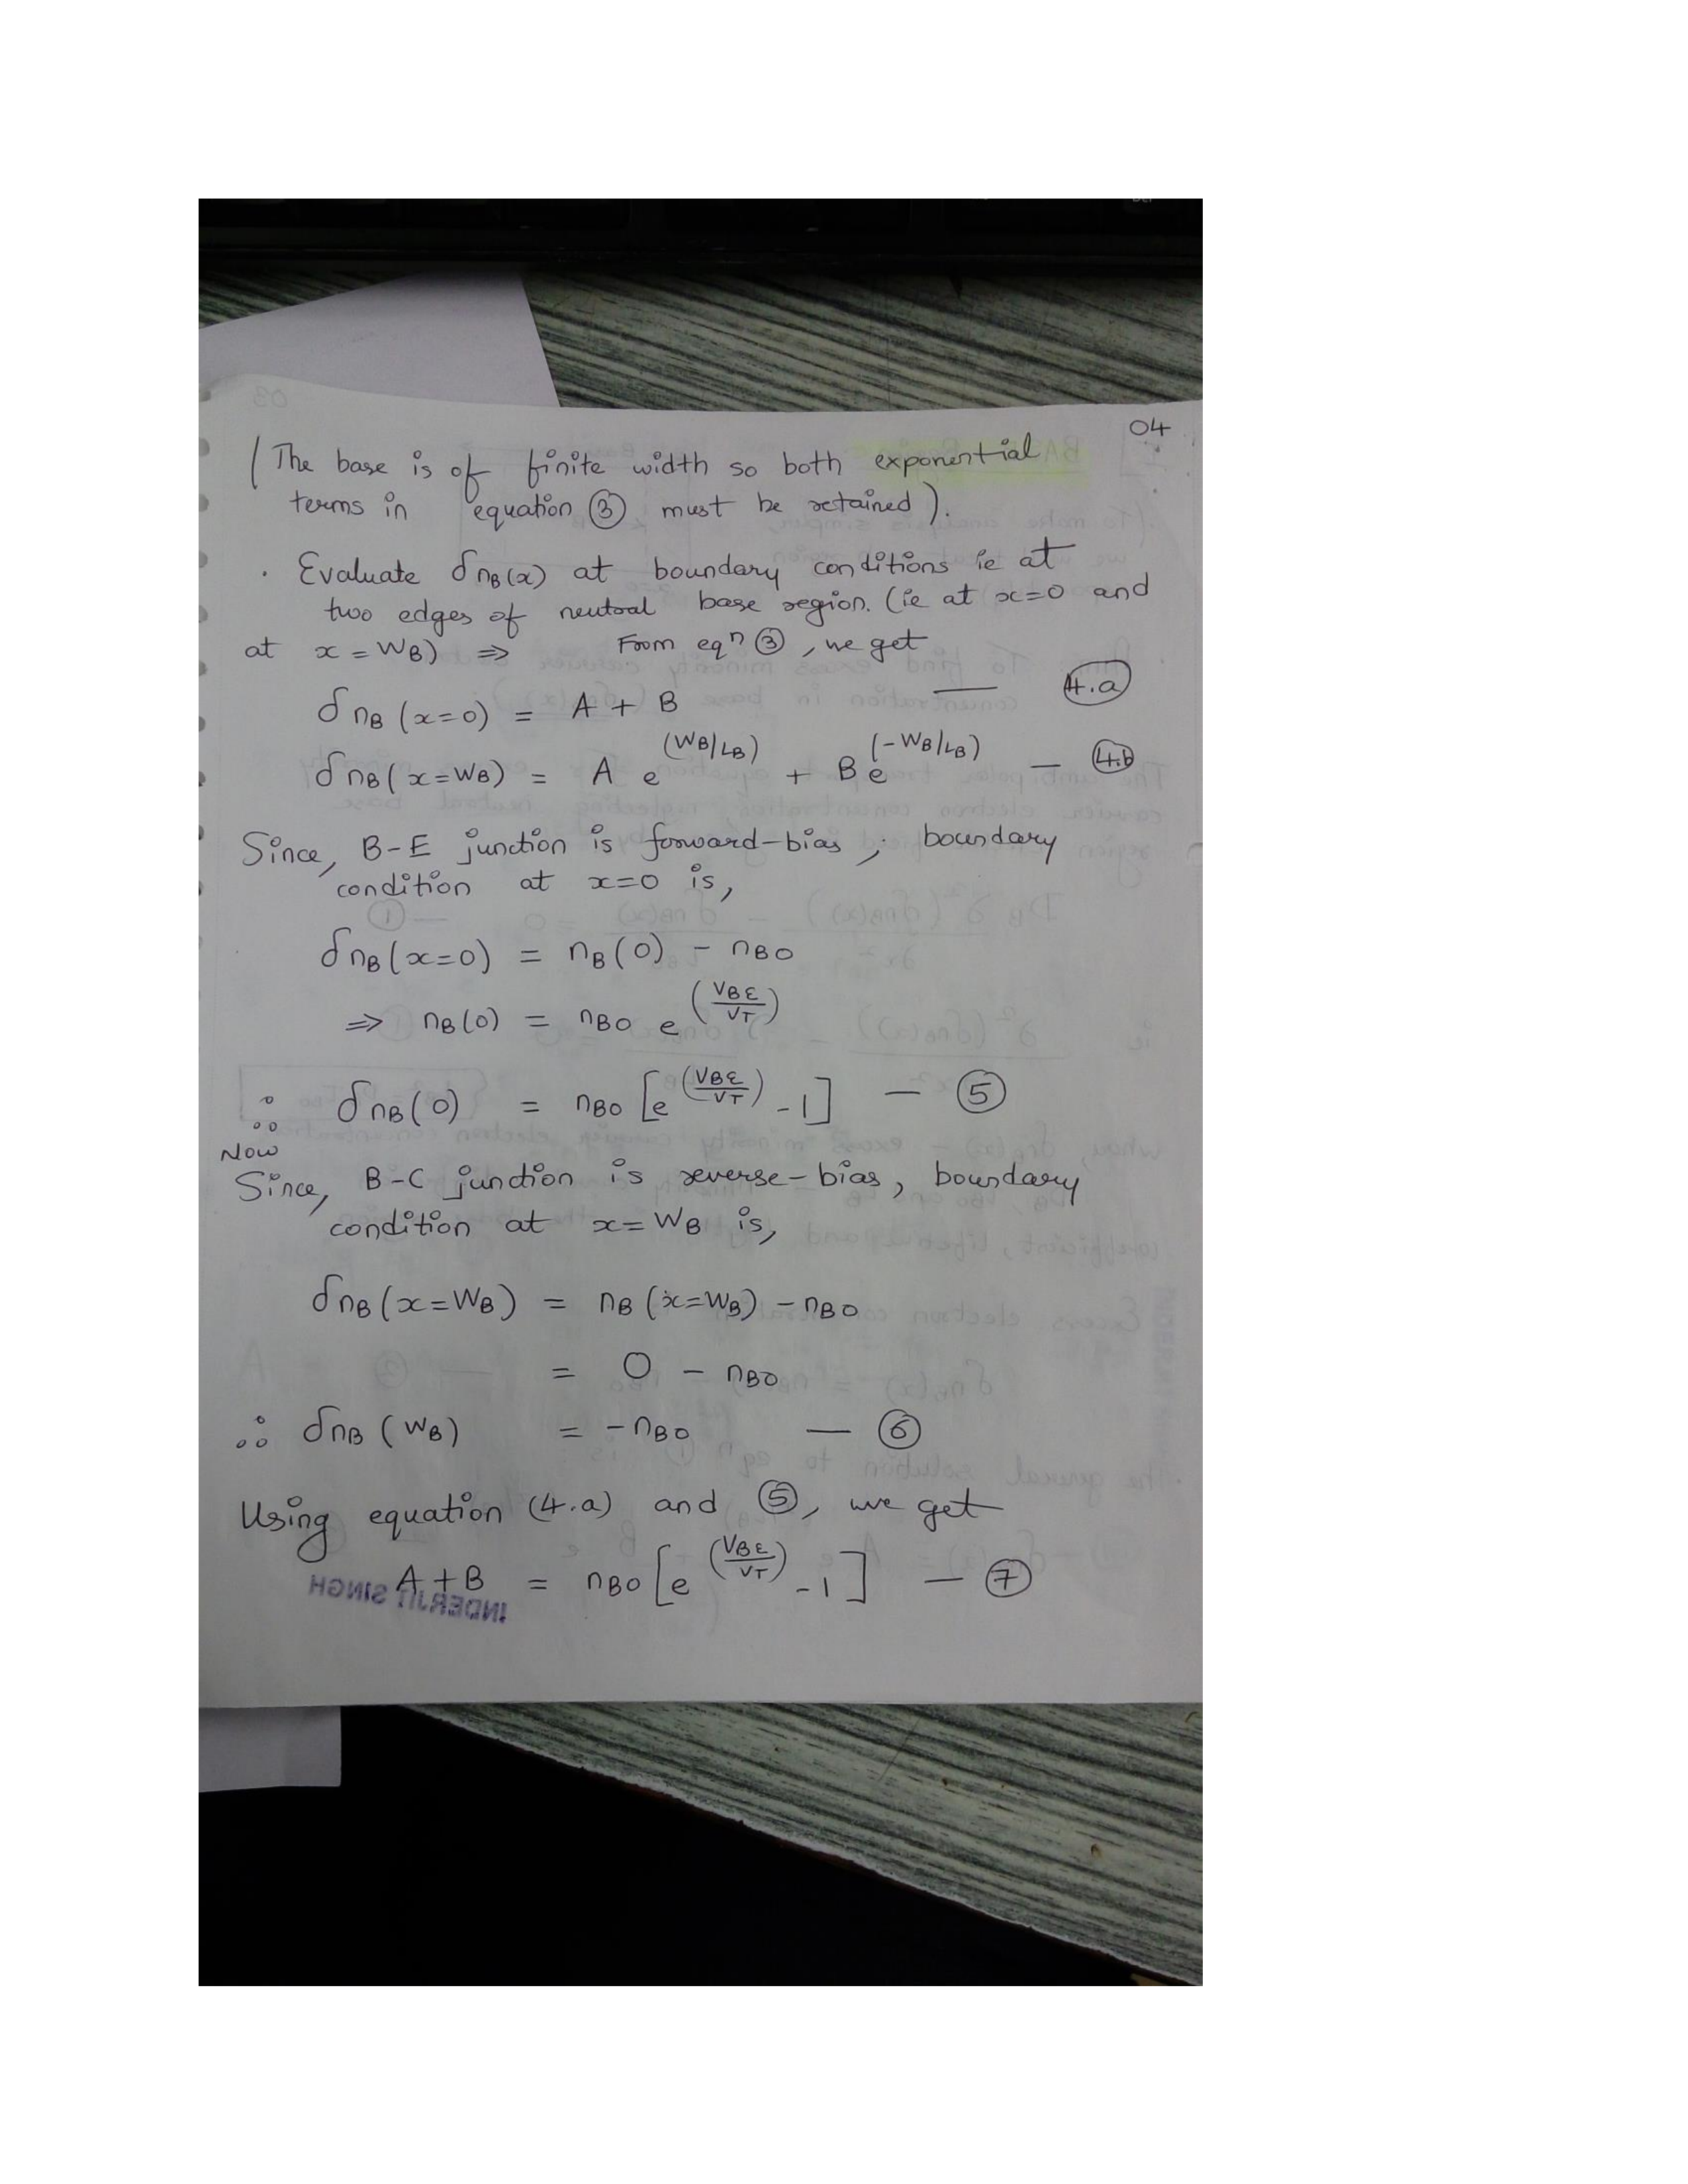 04
(The base is of finite width so both exponential
terms in equation ③ must be retained).
. Evaluate δnB(x) at boundary conditions ie at
two edges of neutral base region. (ie at x=0 and
at x = WB) ⇒ From eqⁿ ③, we get
δnB (x=0) = A + B — 4.a
δnB(x=WB) = A e^(WB/LB) + B e^(-WB/LB) — 4.b
Since, B-E junction is forward-bias, boundary
condition at x=0 is,
δnB(x=0) = nB(0) - nBO
⇒ nB(0) = nBO e^(VBE/VT)
∴ δnB(0) = nBO [e^(VBE/VT) -1] — ⑤
Now
Since, B-C junction is reverse-bias, boundary
condition at x=WB is,
δnB(x=WB) = nB(x=WB) - nBO
= 0 - nBO
∴ δnB (WB) = - nBO — ⑥
Using equation (4.a) and ⑤, we get
A+B = nBO [e^(VBE/VT) -1] — ⑦
INDERJIT SINGH